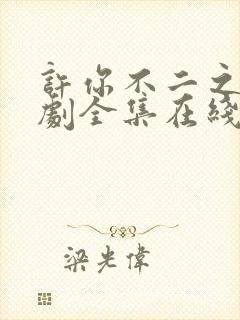 許你不二之
劇全集在綫
梁光偉